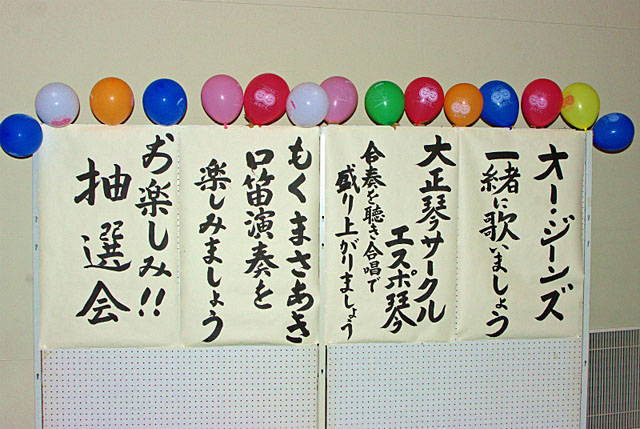 オー・ジーンズ
一緒に歌いましょう
大正琴サークル
エスポ琴
合奏を聴き合唱で
盛り上がりましょう
もくまさあき
口笛演奏を
楽しみましょう
お楽しみ!!
抽選会